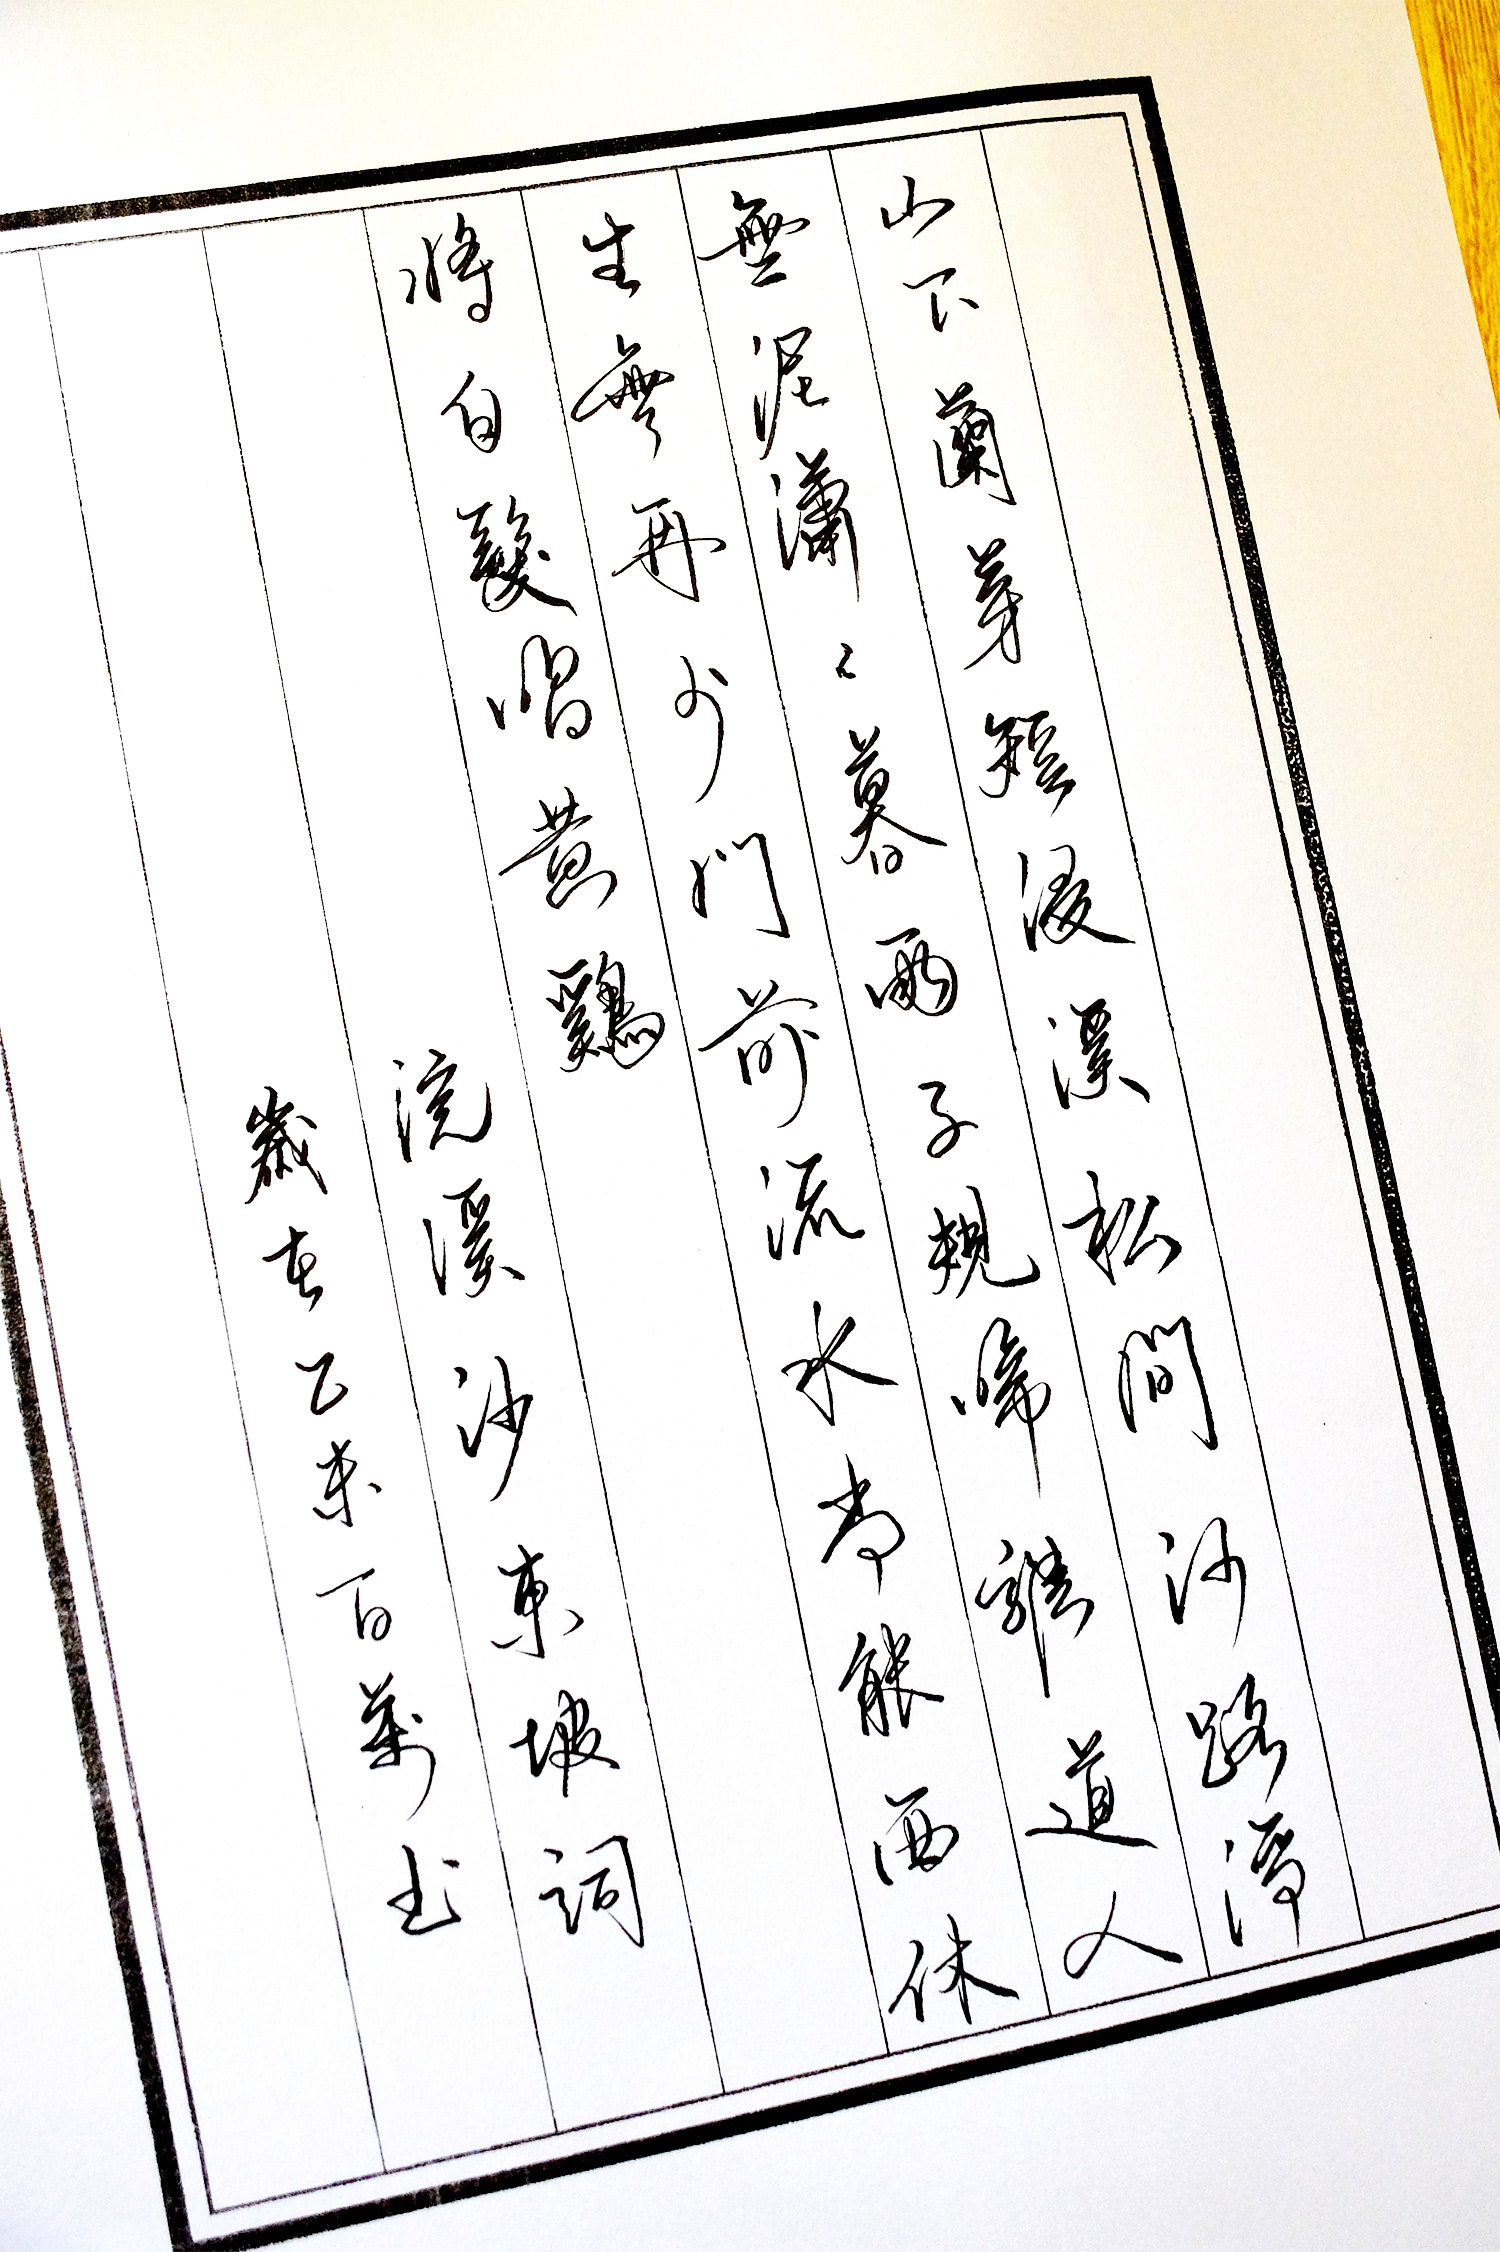 山下蘭芽短浸溪松間沙路淨
無泥瀟〻暮雨子規啼誰道人
生無再少門前流水尚能西休
將白髮唱黃鷄
浣溪沙東坡詞
歲在乙未百萬書